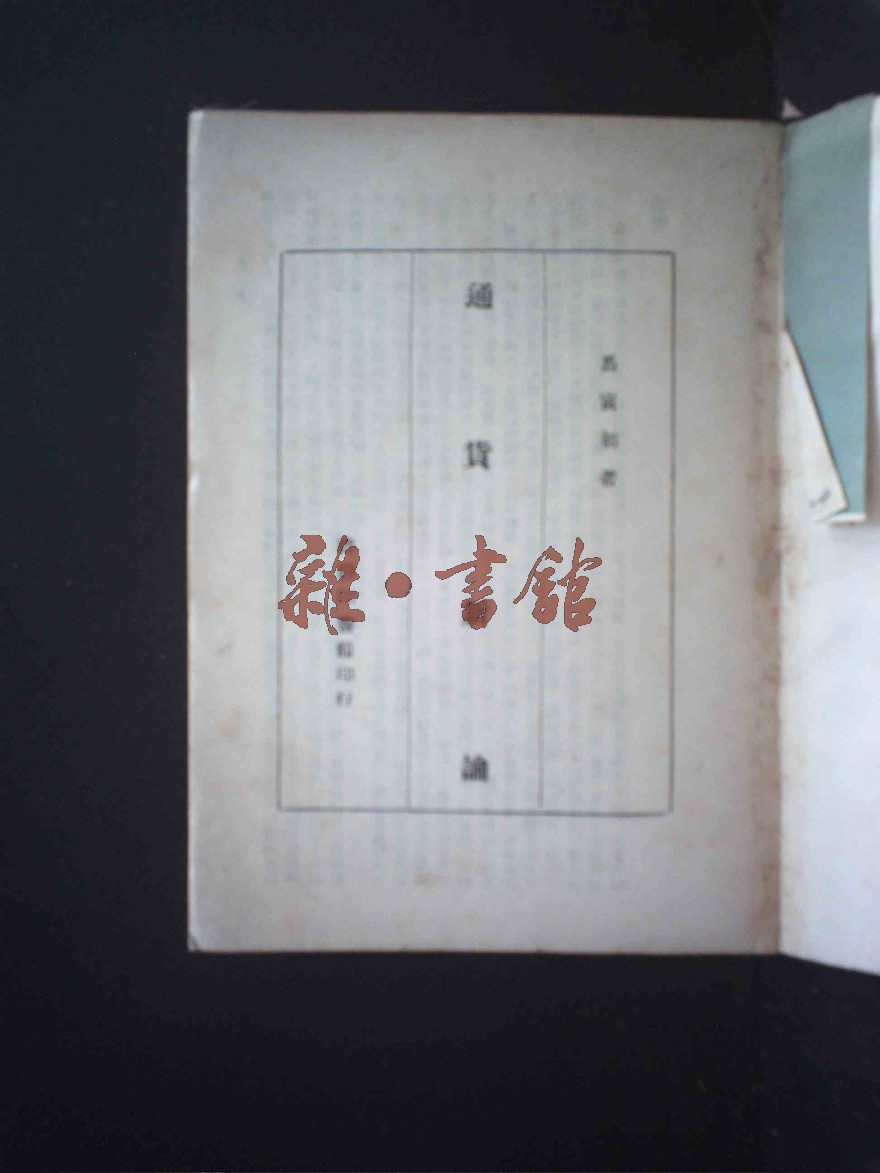 馬寅初著
通貨論
館印行
雜•書館